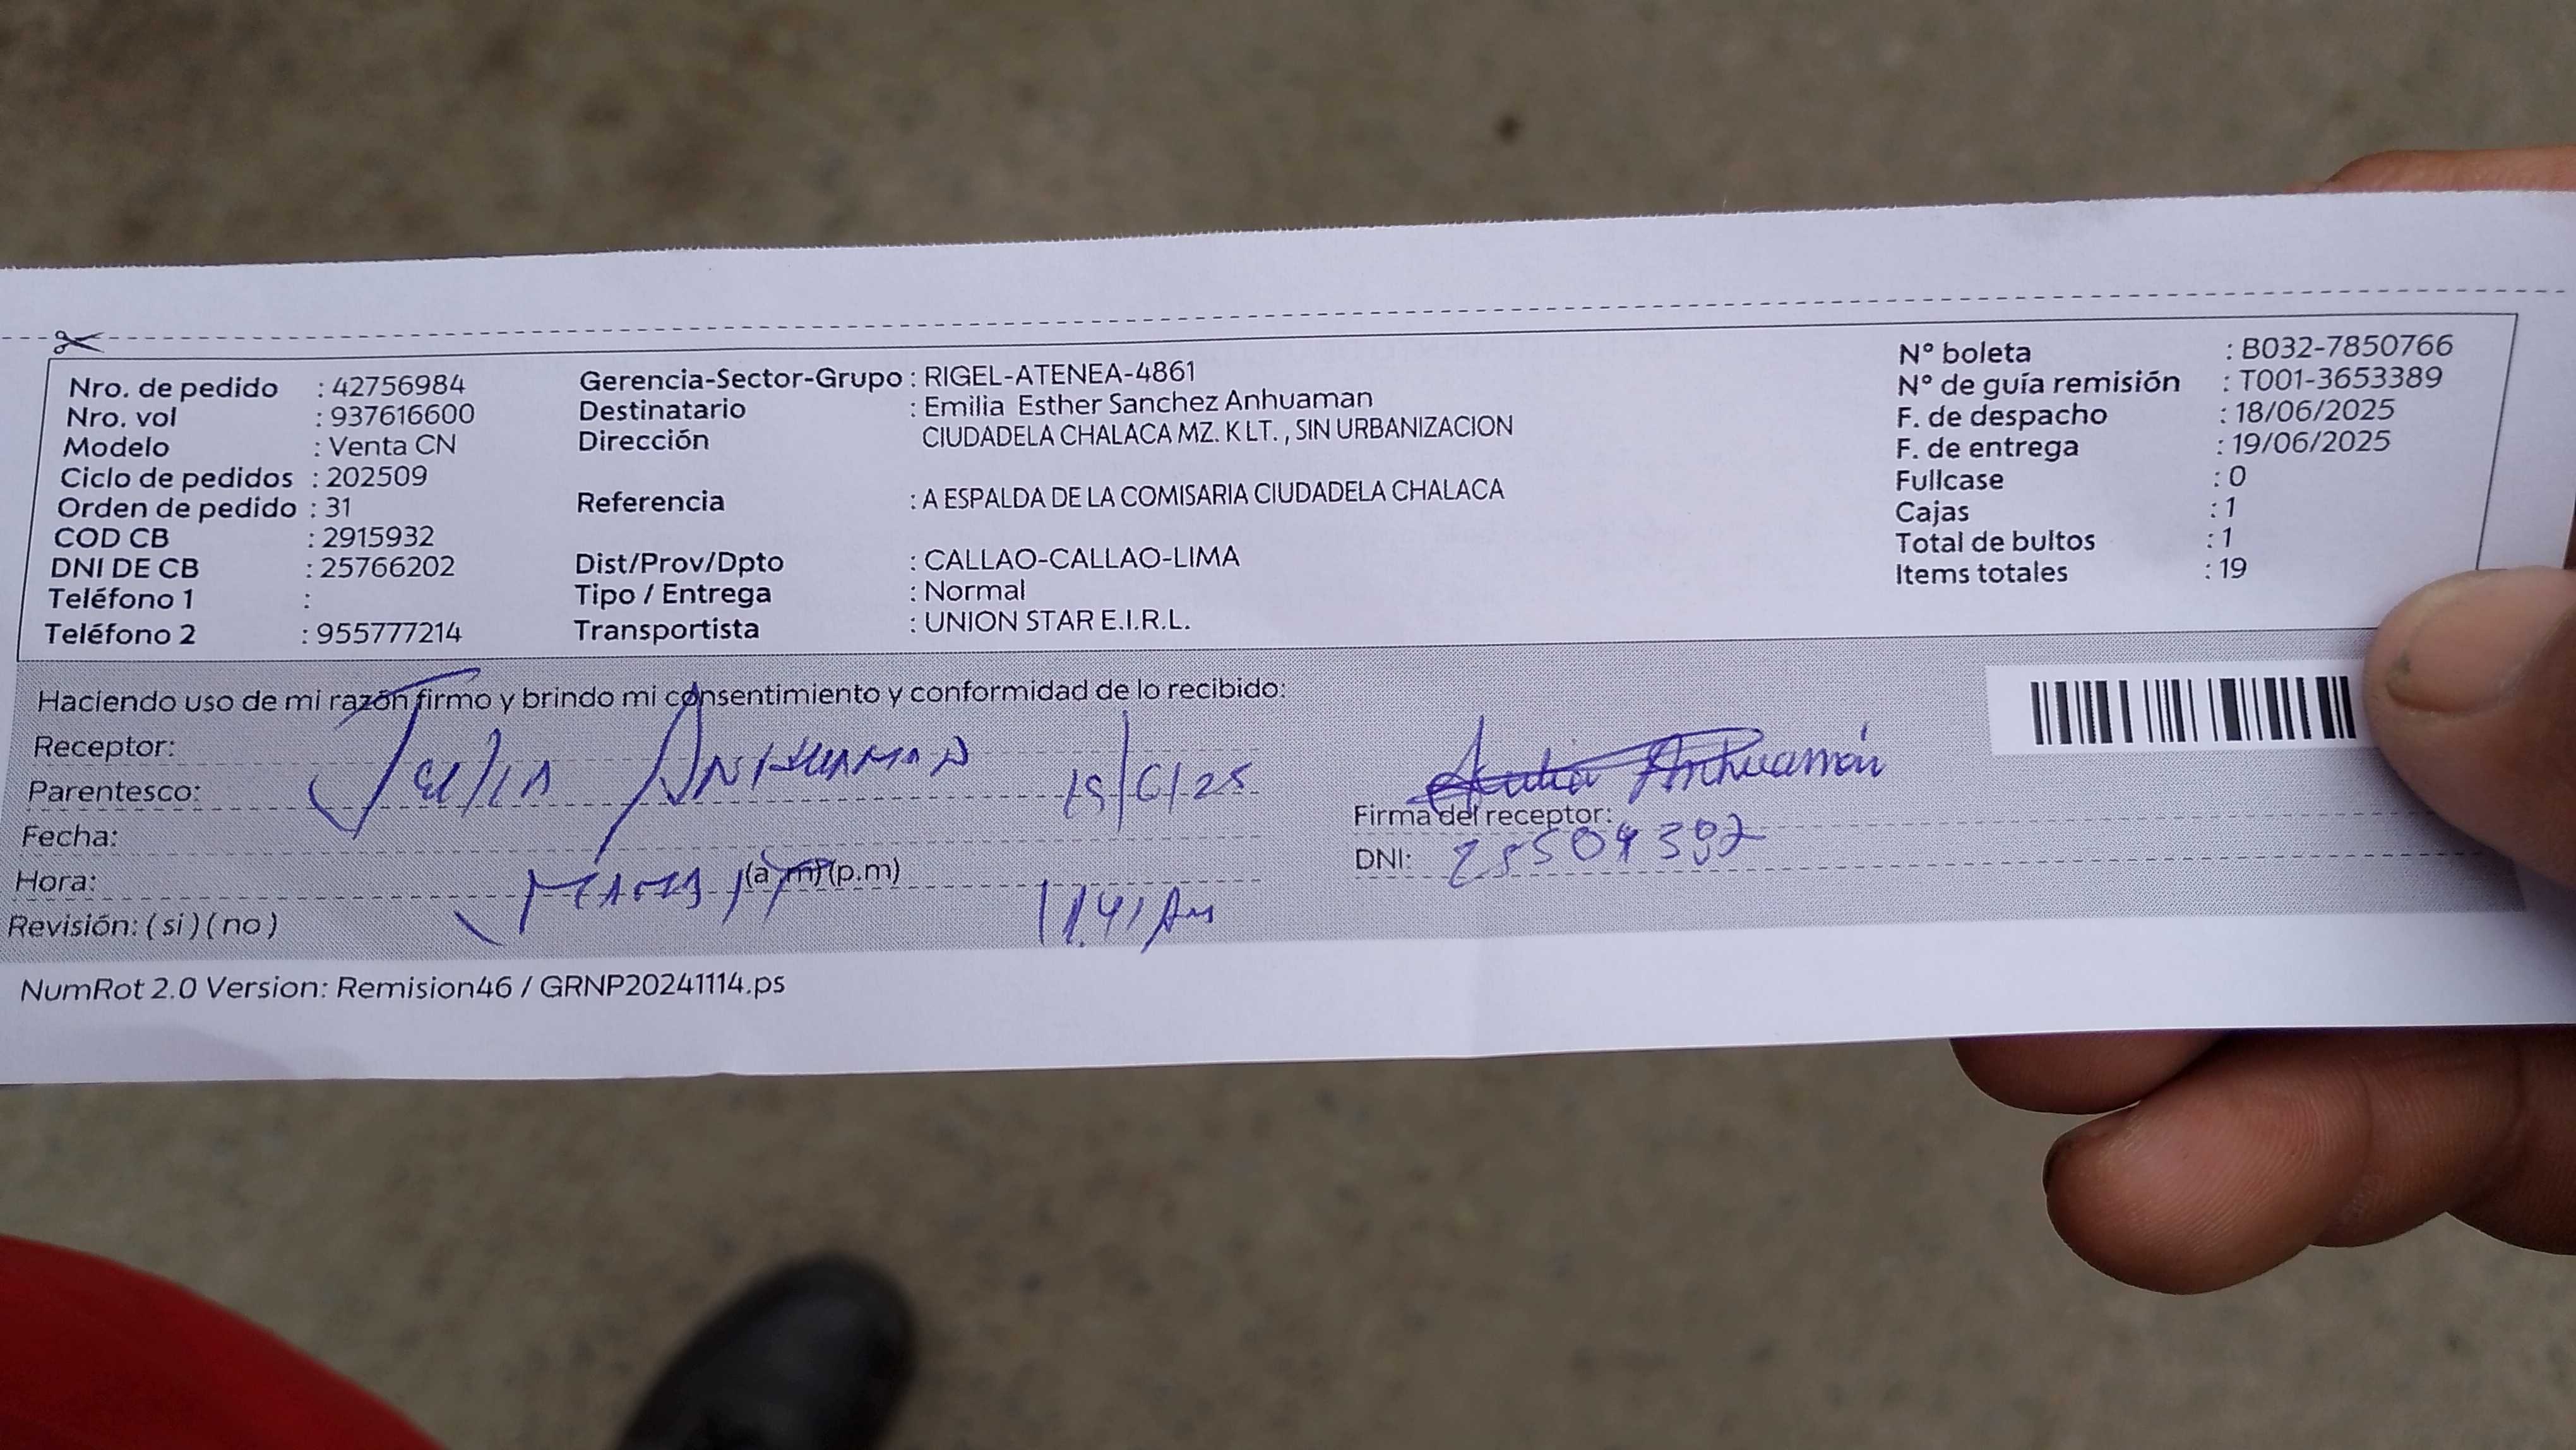 Nro. de pedido : 42756984
Nro. vol : 937616600
Modelo : Venta CN
Ciclo de pedidos : 202509
Orden de pedido : 31
COD CB : 2915932
DNI DE CB : 25766202
Teléfono 1 :
Teléfono 2 : 955777214
Gerencia-Sector-Grupo : RIGEL-ATENEA-4861
Destinatario : Emilia Esther Sanchez Anhuaman
Dirección CIUDADELA CHALACA MZ. K LT. , SIN URBANIZACION
Referencia : A ESPALDA DE LA COMISARIA CIUDADELA CHALACA
Dist/Prov/Dpto : CALLAO-CALLAO-LIMA
Tipo / Entrega : Normal
Transportista : UNION STAR E.I.R.L.
N° boleta : B032-7850766
N° de guía remisión : T001-3653389
F. de despacho : 18/06/2025
F. de entrega : 19/06/2025
Fullcase : 0
Cajas : 1
Total de bultos : 1
Items totales : 19
Haciendo uso de mi razón firmo y brindo mi consentimiento y conformidad de lo recibido:
Receptor:
Parentesco: Anhuaman
Fecha:
Hora: (a.m) (p.m) 11.41 Am
Revisión: ( si ) ( no )
Anhuamán
Firma del receptor:
DNI:
NumRot 2.0 Version: Remision46 / GRNP20241114.ps